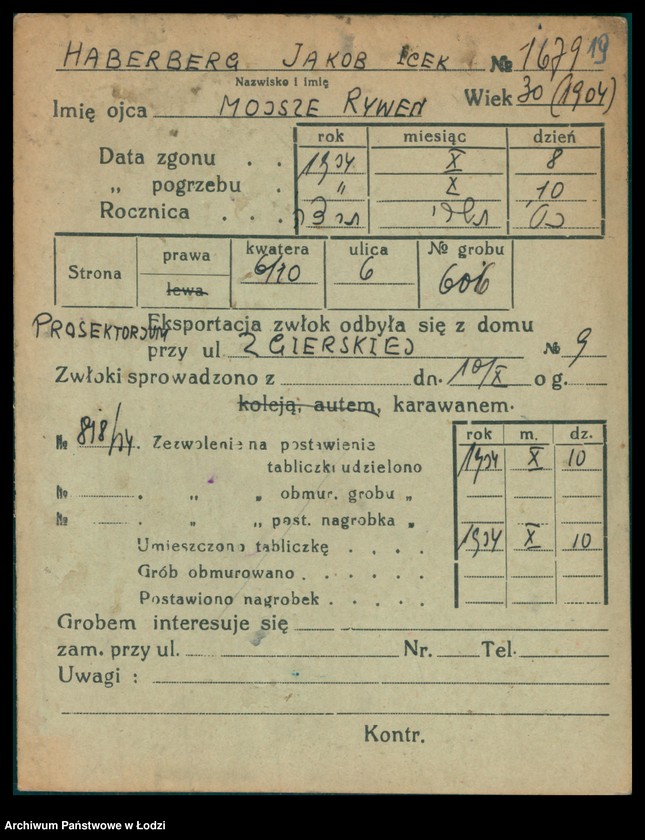 HABERBERG JAKOB ICEK № 1679 19
Nazwisko i imię
Imię ojca MOJSZE RYWEN Wiek 30 (1904)
rok miesiąc dzień
Data zgonu . . 1934 X 8
„ pogrzebu . „ X 10
Rocznica . . .
Strona prawa lewa kwatera 6/10 ulica 6 № grobu 606
PROSEKTORJUM Eksportacja zwłok odbyła się z domu
przy ul ZGIERSKIEJ № 9
Zwłoki sprowadzono z dn. 10/X o g.
koleją, autem, karawanem.
rok m. dz.
№ 898/34 Zezwolenie na postawienie
tabliczki udzielono 1934 X 10
№ . „ „ obmur. grobu „
№ . „ „ post. nagrobka „
Umieszczono tabliczkę . . . . 1934 X 10
Grób obmurowano . . . . . .
Postawiono nagrobek . . . . .
Grobem interesuje się
zam. przy ul. Nr. Tel.
Uwagi :
Kontr.
Archiwum Państwowe w Łodzi